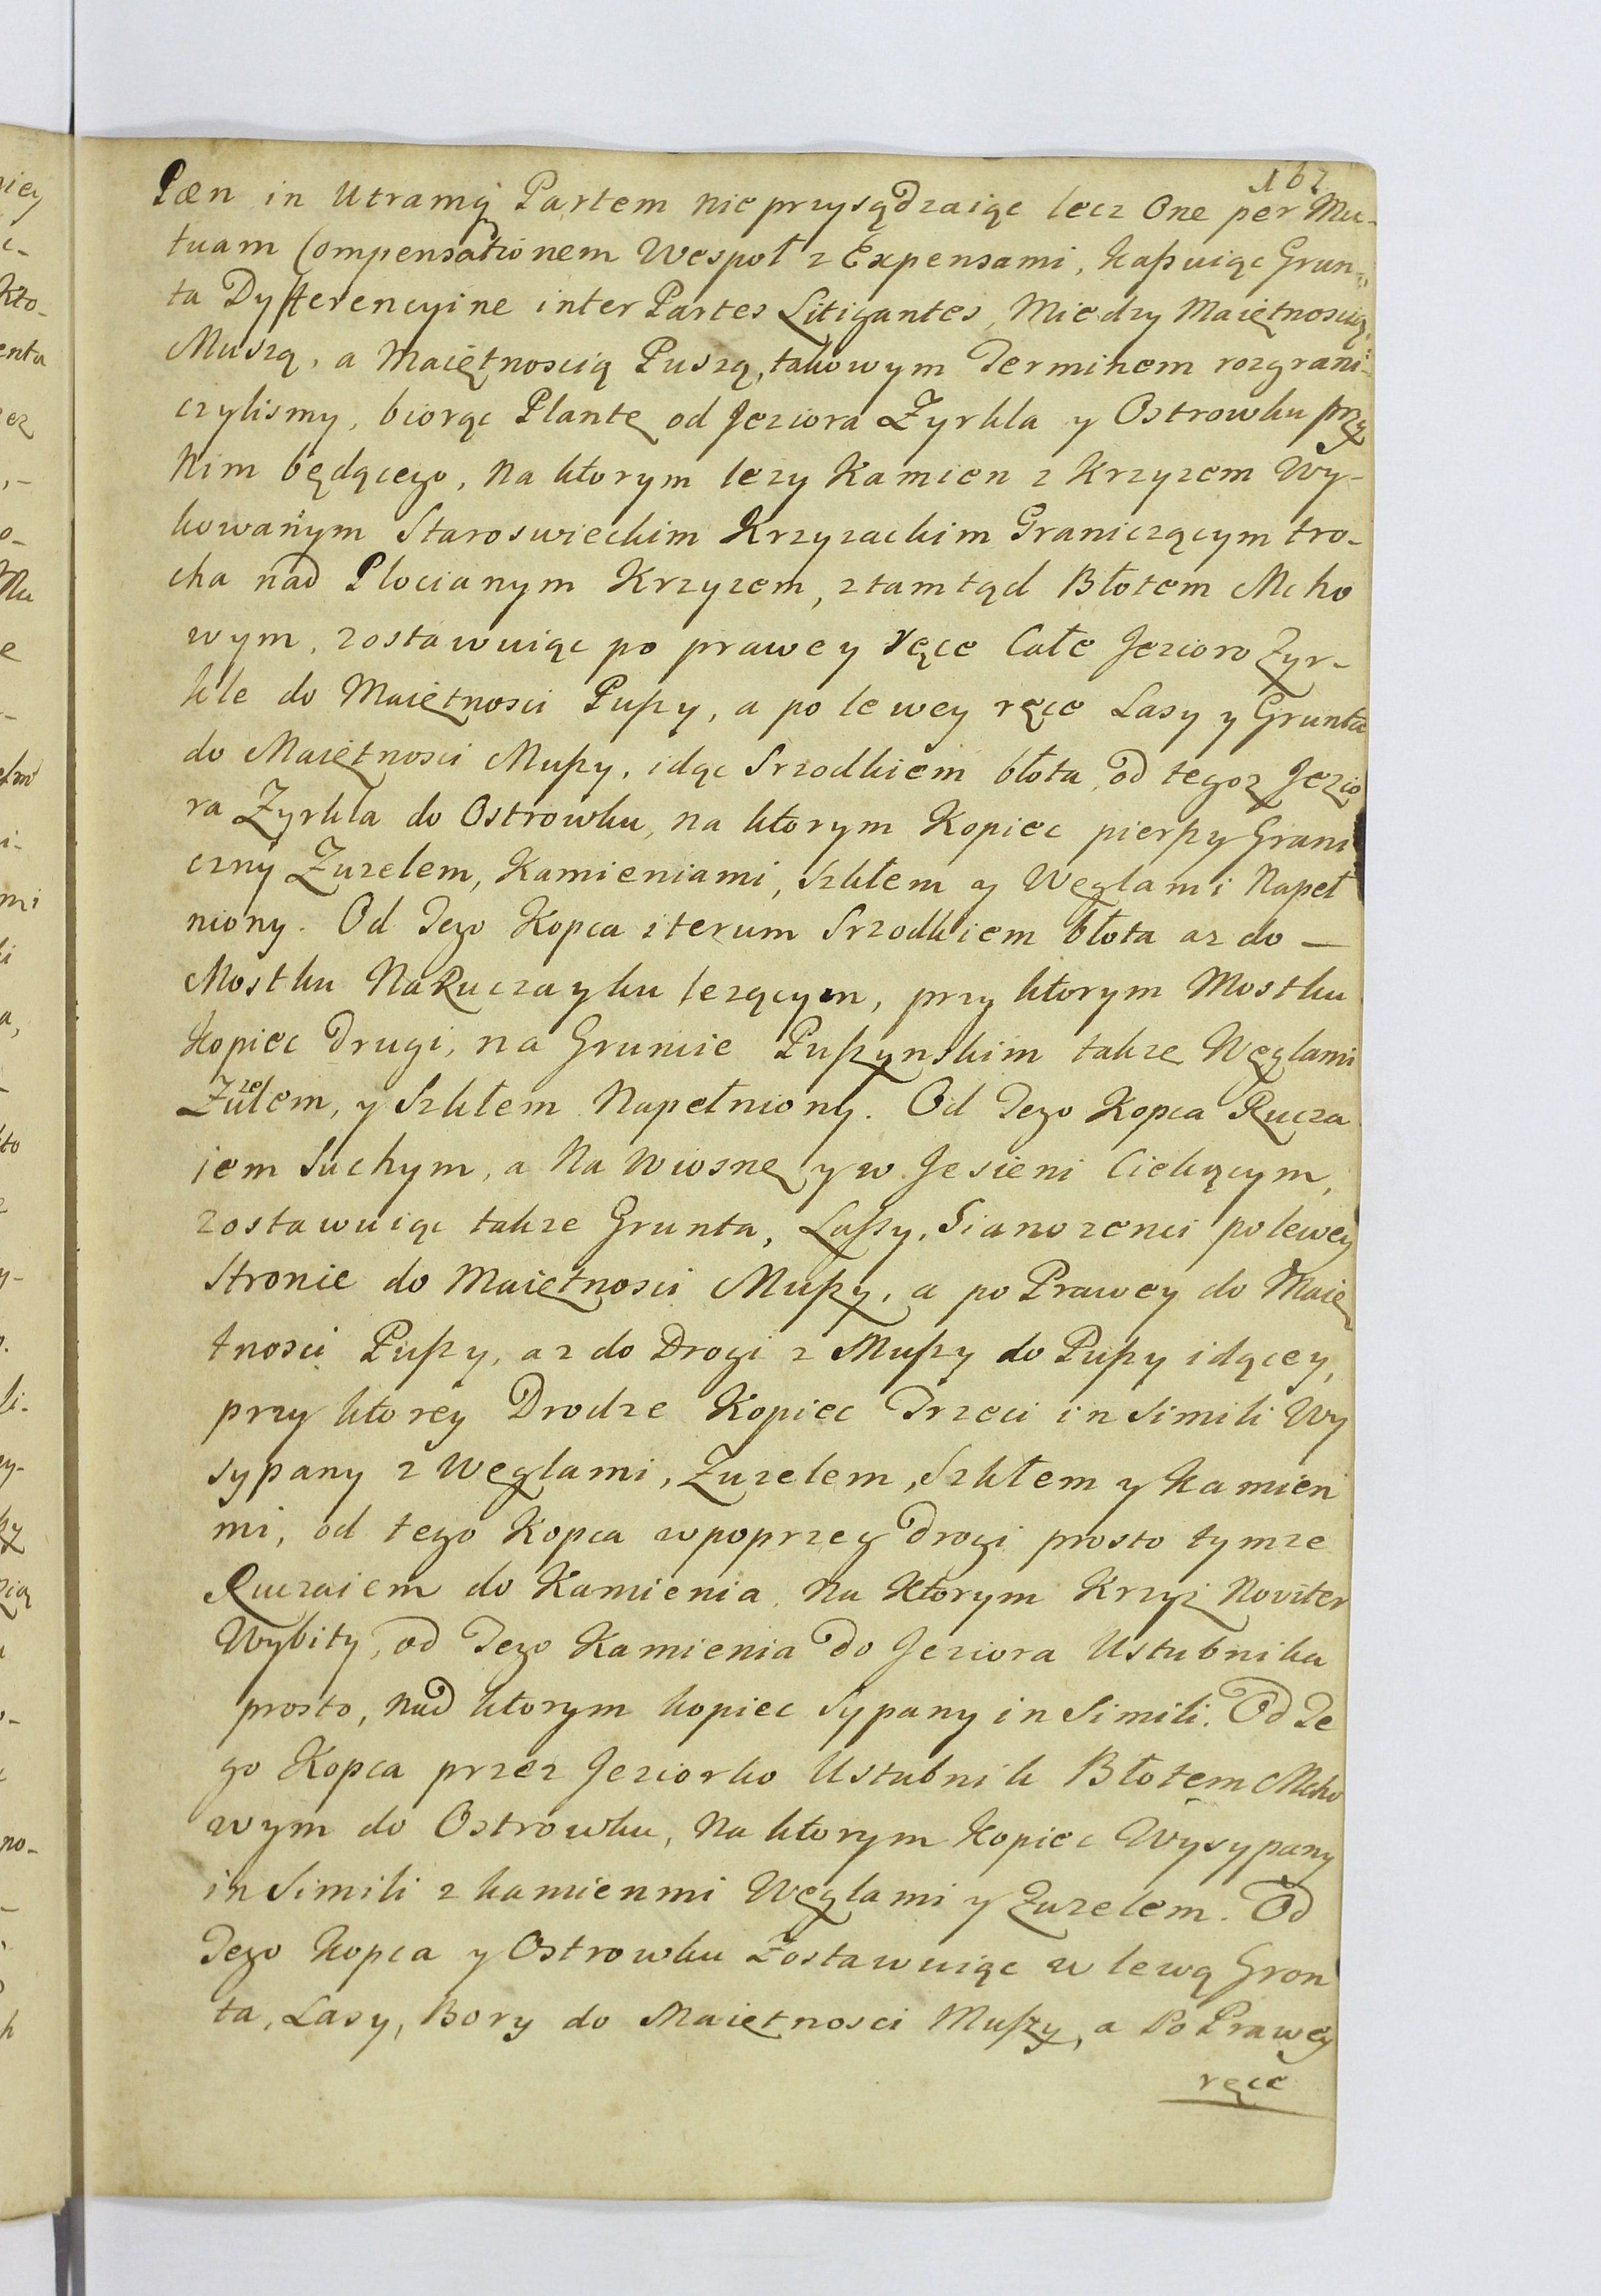 162
Pæn in Utramq Partem nieprzysądzaiąc lecz One per Mu-
tuam Compensationem Wespoł z Expensami, kaßuiąc Grun-
ta Dyfferencyine inter Partes Litigantes, Miedzy Maiętnoscią
Muszą, a Maiętnoscią Puszą, takowym Terminem rozgrani-
czylismy, biorąc Plantę od Jeziora Zyrkla y Ostrowku przy
nim będącego, na ktorym lezy Kamien z Krzyzem Wy-
kowanym Staroswieckim Krzyzackim Graniczącym tro-
cha nad Plocianym Krzyzem, ztamtąd Błotem Mcho
wym, zostawuiąc po prawey ręce Całe Jezioro Zyr-
kle do Maiętnosci Pußy, a po lewey ręce Lasy y Grunta
do Maiętnosci Mußy, idąc Srzodkiem błota, od tegoz Jezio
ra Zyrkla do Ostrowku, na ktorym Kopiec pierßy Grani
czny Zuzelem, Kamieniami, Szkłem y Węglami Napeł
niony. Od Tego Kopca iterum Srzodkiem błota az do —
Mostku Na Ruczayku lezącym, przy ktorym Mostku
Kopiec Drugi, na Gruncie Pußynskim takze Węglami
Zuzelem, y Szkłem Napełniony. Od Tego Kopca Rucza
iem Suchym, a Na Wiosnę y w Jesieni Ciekącym,
zostawuiąc takze Grunta, Laßy, Sianozenci po lewey
Stronie do Maiętnosci Mußy, a po Prawey do Maię
tnosci Pußy, az do Drogi z Mußy do Pußy idącey,
przy ktorey Drodze Kopiec Trzeci in Simili Wy
sypany z Węglami, Zuzelem, Szkłem y Kamien
mi, od tego Kopca wpoprzeg Drogi prosto tymze
Ruczaiem do Kamienia, Na Ktorym Krzyz Noviter
Wybity, od Tego Kamienia Do Jeziora Ustubnika
prosto, Nad ktorym kopiec Sypany in Simili. Od Te
go Kopca przez Jeziorko Ustubnik Błotem Mcho
wym do Ostrowku, Na ktorym Kopiec Wysypany
in Simili z kamienmi Węglami y Zuzelem. Od
Tego Kopca y Ostrowku Zostawuiąc w lewą Gron
ta, Lasy, Bory do Maiętnosci Mußy, a Po Prawey
ręce